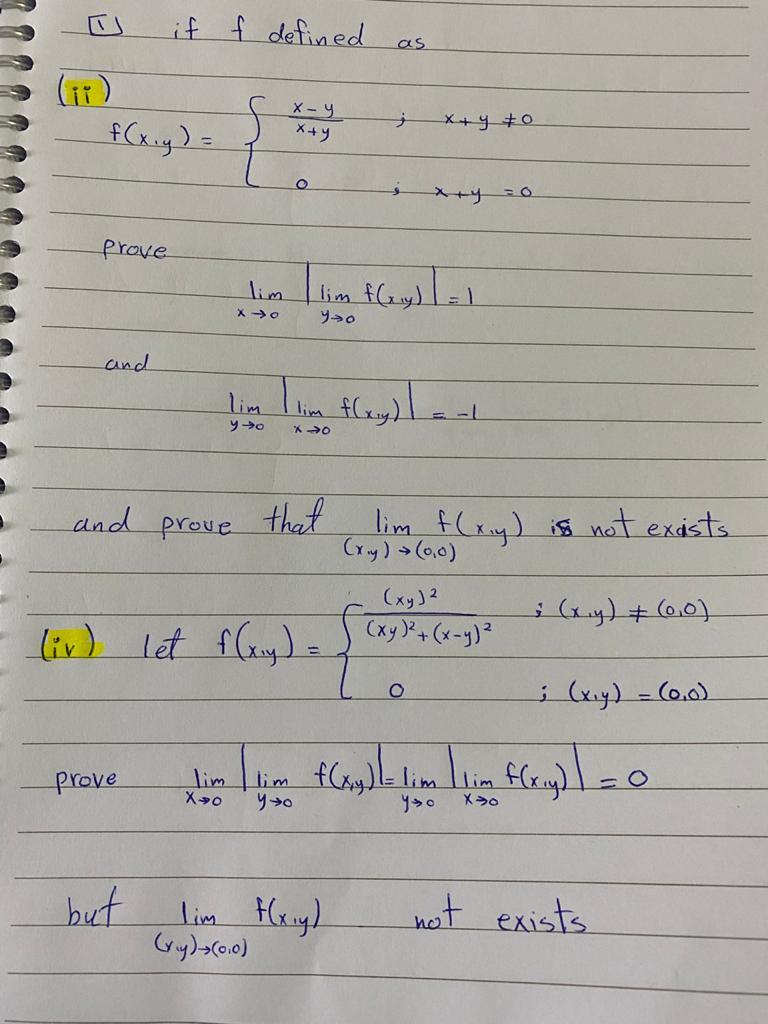 [1] if f defined as
(ii)
f(x,y) = { x-y / x+y ; x+y ≠ 0
0 ; x+y = 0
prove
lim x→0 | lim y→0 f(x,y) | = 1
and
lim y→0 | lim x→0 f(x,y) | = -1
and prove that lim (x,y)→(0,0) f(x,y) is not exists
(iv) let f(x,y) = { (xy)² / (xy)²+(x-y)² ; (x,y) ≠ (0,0)
0 ; (x,y) = (0,0)
prove lim x→0 | lim y→0 f(x,y) | = lim y→0 | lim x→0 f(x,y) | = 0
but lim (x,y)→(0,0) f(x,y) not exists